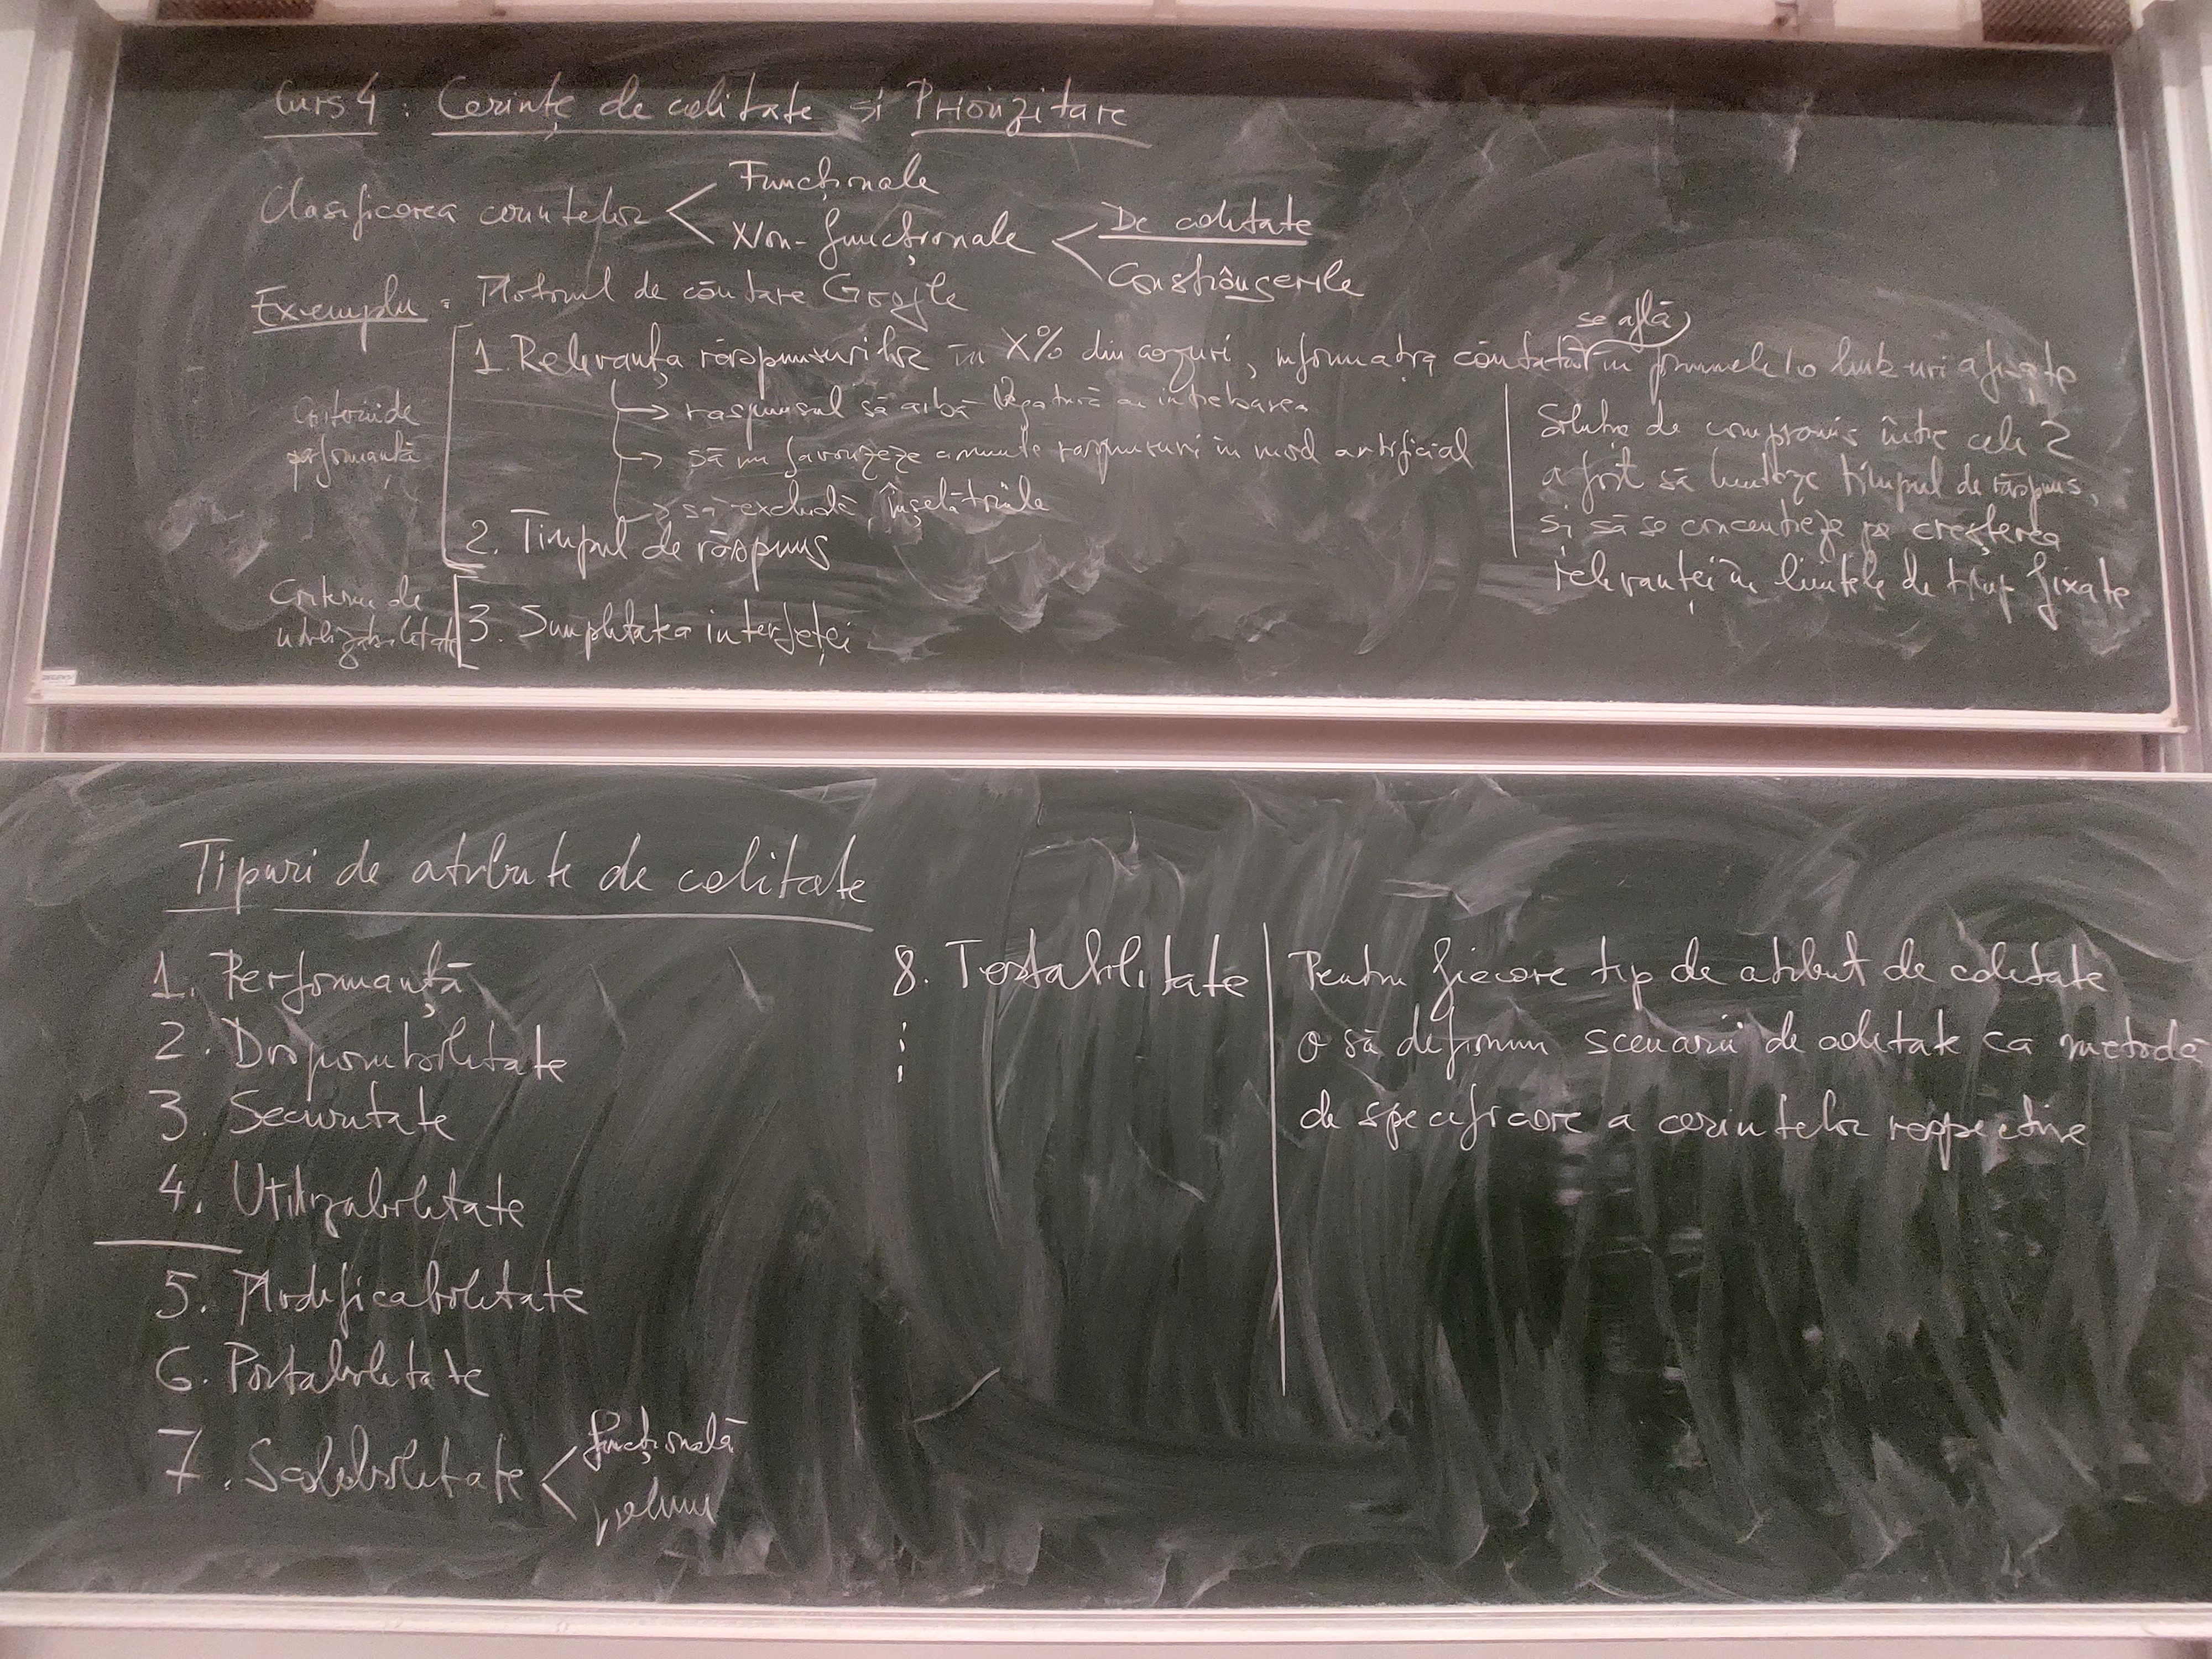 Curs 4 : Cerințe de calitate și Prioritizare
Clasificarea cerințelor
Funcționale
Non-funcționale
De calitate
Constrângerile
Exemplu : Motorul de căutare Google
Criterii de performanță
1. Relevanța răspunsurilor în X% din cazuri, informația căutată se află în primele 10 link-uri afișate
→ raspunsul să aibă legatură cu intrebarea
→ să nu favorizeze anumite raspunsuri in mod artificial
→ să excludă înșelătoriile
2. Timpul de răspuns
Criterii de utilizabilitate
3. Simplitatea interfeței
Soluția de compromis între cele 2
a fost să limiteze timpul de răspuns,
și să se concentreze pe creșterea
relevanței în limitele de timp fixate
Tipuri de atribute de calitate
1. Performanță
2. Disponibilitate
3. Securitate
4. Utilizabilitate
5. Modificabilitate
6. Portabilitate
7. Scalabilitate
funcțională
volum
8. Testabilitate
Pentru fiecare tip de atribut de calitate
o să definim scenarii de calitate ca metodă
de specificare a cerintelor respective